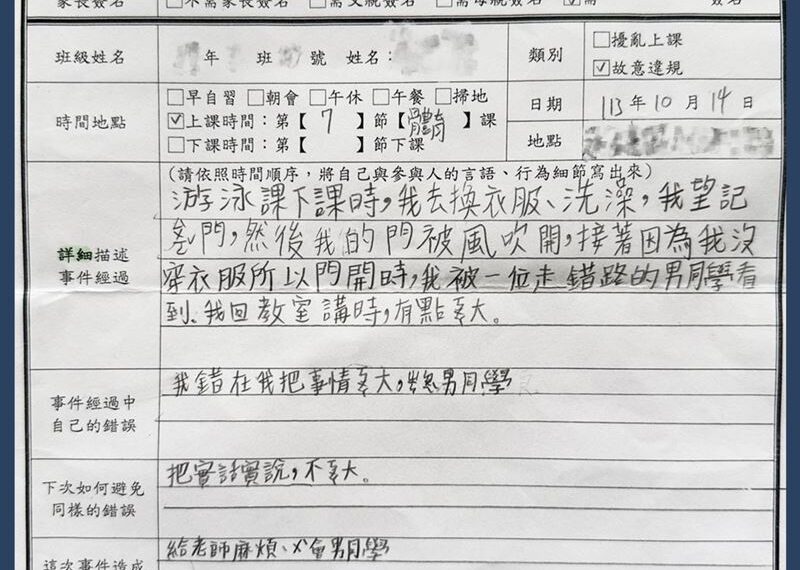 家長簽名 □不需家長簽名 □需父親簽名 □需母親簽名 ☑需 簽名
班級姓名 年 班 號 姓名：
類別 □擾亂上課
☑故意違規
時間地點 □早自習 □朝會 □午休 □午餐 □掃地
☑上課時間：第【 7 】節【體育】課
□下課時間：第【 】節下課
日期 113年10月14日
地點
(請依照時間順序，將自己與參與人的言語、行為細節寫出來)
詳細描述
事件經過
游泳課下課時，我去換衣服、洗澡，我望記
門，然後我的門被風吹開，接著因為我沒
穿衣服所以門開時，我被一位走錯路的男同學看
到、我回教室講時，有點大。
事件經過中
自己的錯誤
我錯在我把事情大，男同學
下次如何避免
同樣的錯誤
把實話實說，不大。
這次事件造成
給老師麻煩、會男同學